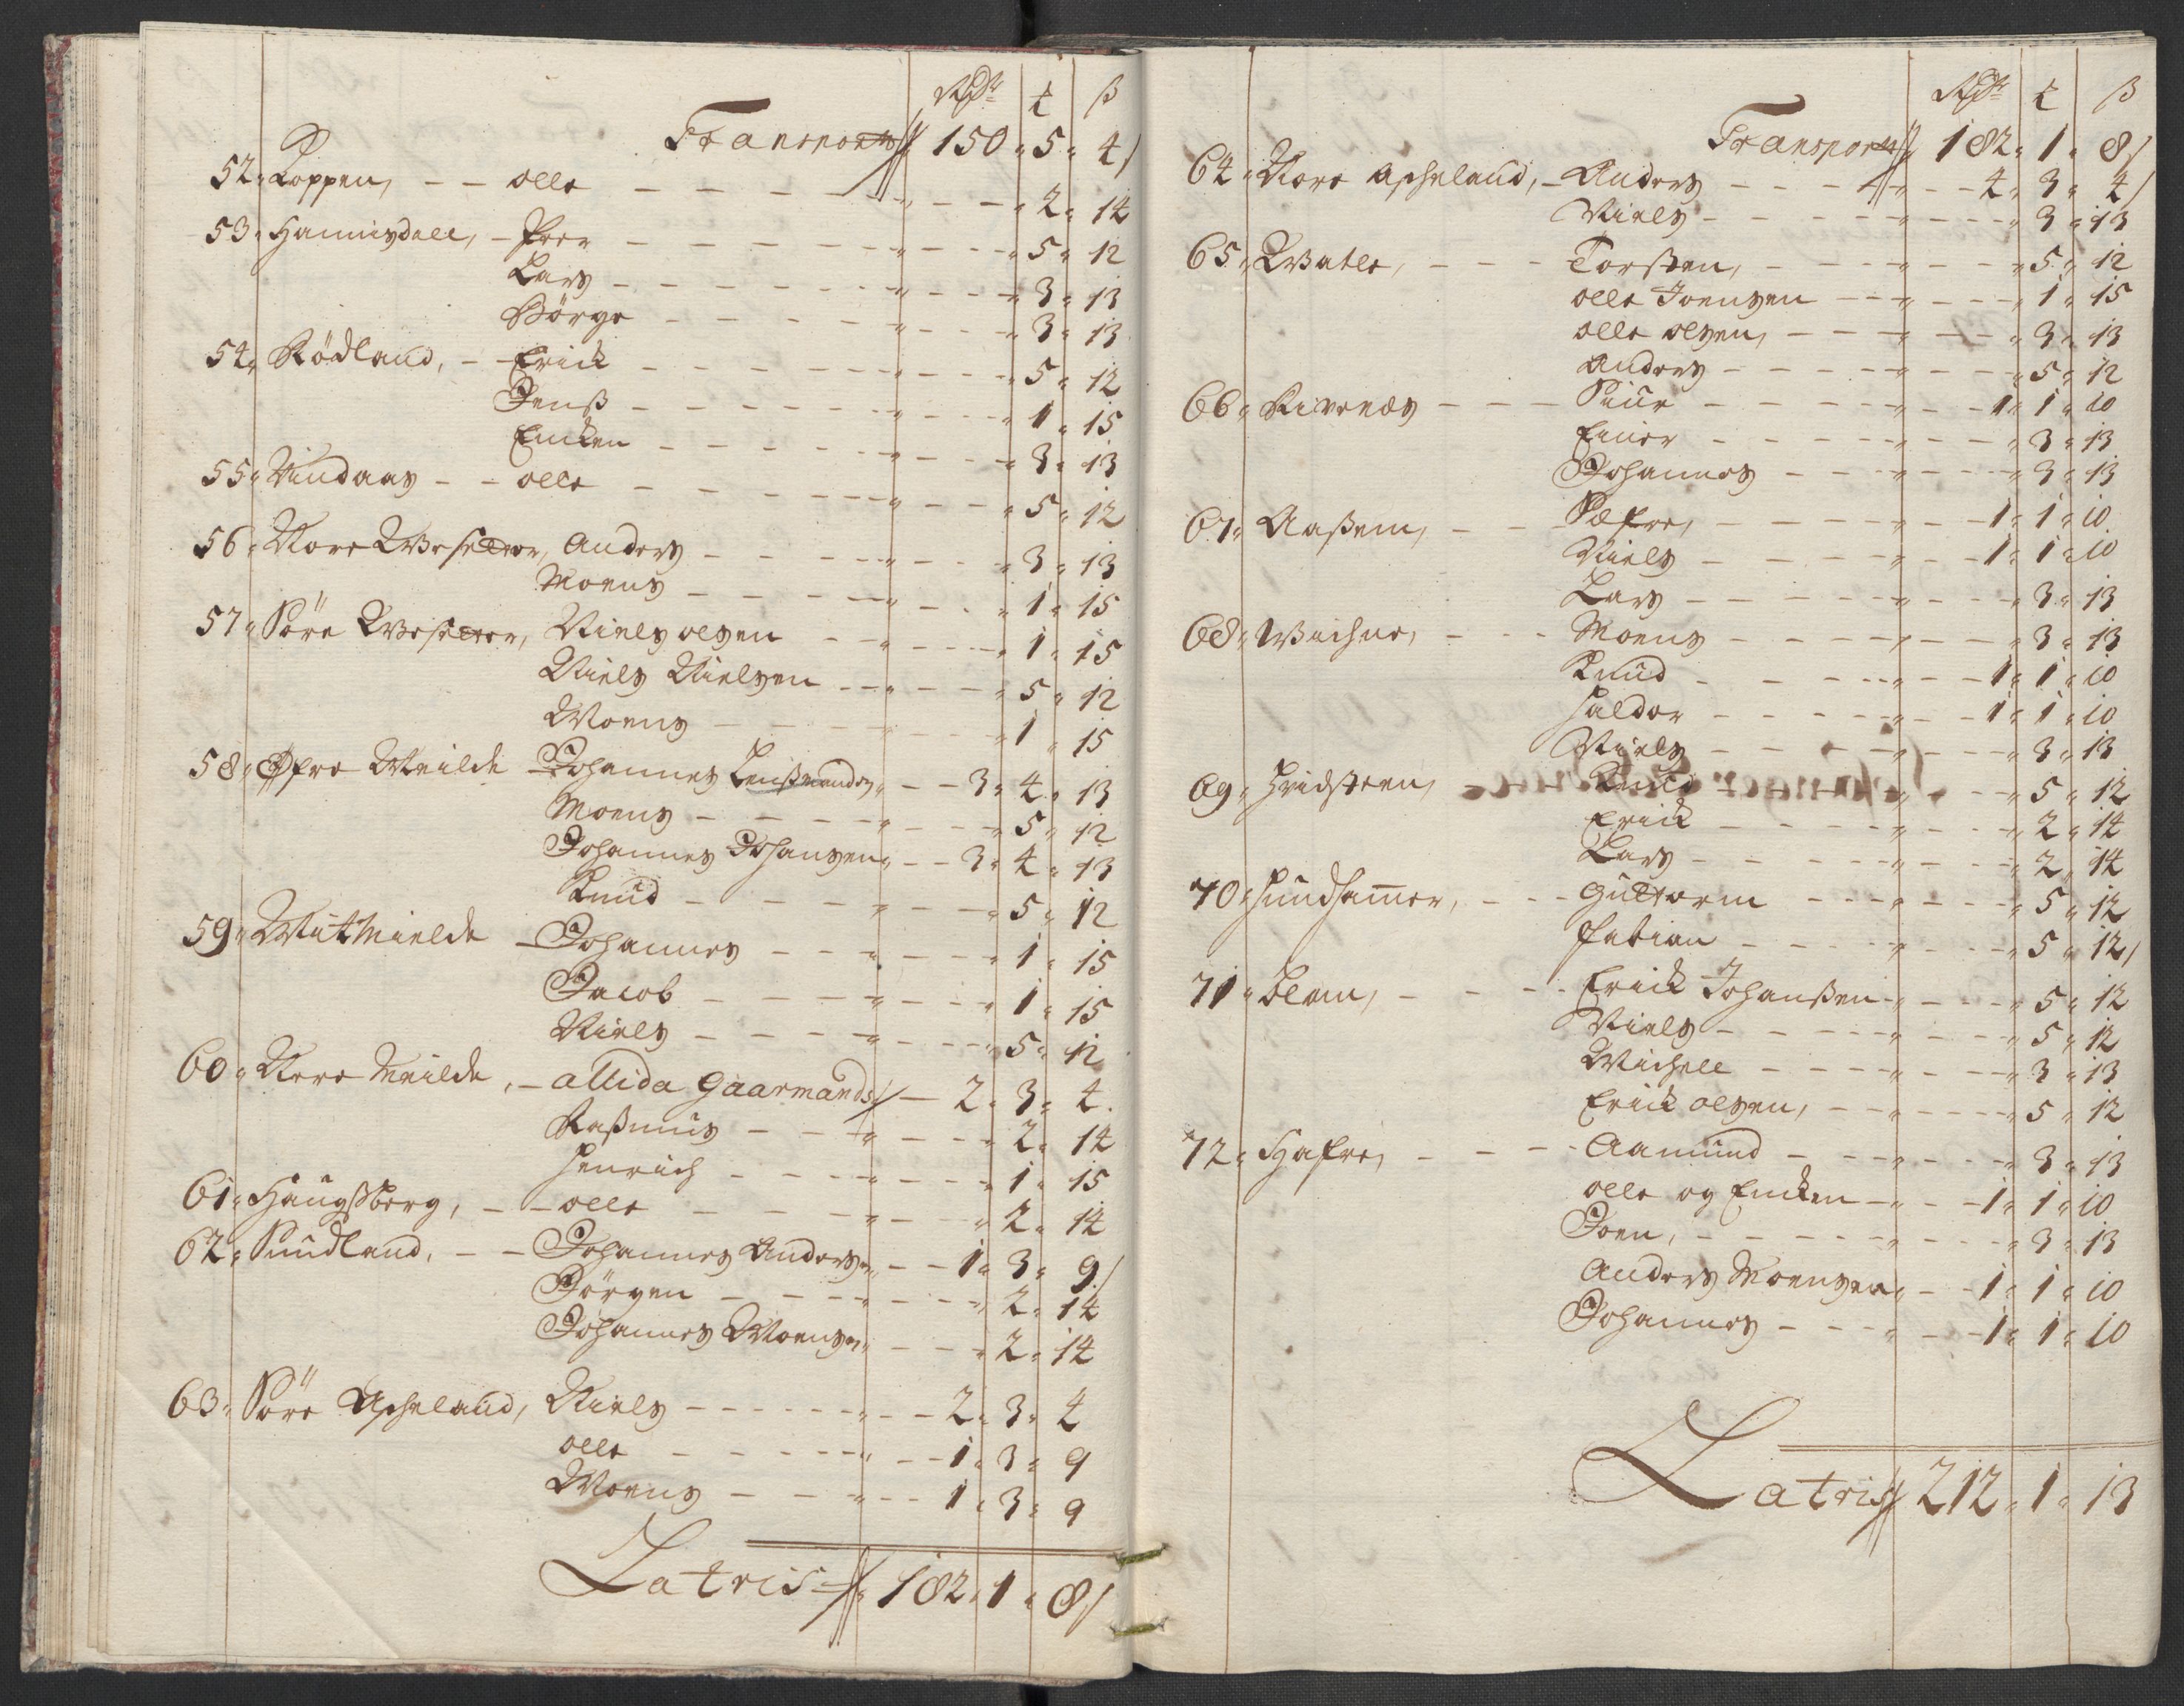 Rdr ₰ ß
Transport 150 " 5 " 4
52 " Koppen, - - olle - - - " - - " 2 " 14
53 " Hannisdall, - Peer - - - " - - " 5 " 12
Lars - - - " - - " 3 " 13
Börge - - - " - - " 3 " 13
54 " Rödland, - - Erick - - - " - - " 5 " 12
Jenß - - - " - - " 1 " 15
Encken - - - " - - " 3 " 13
55 " Vindaas - - olle - - - " - - " 5 " 12
56 " Nore Wesetter, Anders - - - " - - " 3 " 13
Moens - - - " - - " 1 " 15
57 " Söre Wesetter, Niels olsen - - " - - " 1 " 15
Niels Nielsen - - " - - " 5 " 12
Moens - - - " 1 " 15
58 " Öfre Mielde - Johannes Lenßmands " - - 3 " 4 " 13
Moens - - - " - - " 5 " 12
Johannes Johansen " - - 3 " 4 " 13
Knud - - - " - - " 5 " 12
59 " Mitmielde - Johannes - - - " - - " 1 " 15
Jacob - - - " - - " 1 " 15
Niels - - - " - - " 5 " 12
60 " Nere Mielde, - allida Gaarmands - 2 " 3 " 4
Raßmus - - - " - - " 2 " 14
Henrich - - - " - - " 1 " 15
61 " Haugßberg, - - olle - - - " - - " 2 " 14
62 " Sundland, - - Johannes Anders: " - - 1 " 3 " 9
Jörgen - - - " - - " 2 " 14
Johannes Moens: " - - " 2 " 14
63 " Söre Apheland, Niels - - - " - - 2 " 3 " 4
olle - - - " - - 1 " 3 " 9
Moens - - - " - - 1 " 3 " 9
Latris 182 " 1 " 8
Rdr ₰ ß
Transport 182 " 1 " 8
64 " Nore Apheland, - Anders - - - - - 4 " 3 " 4
Niels - - - " - - " 3 " 13
65 " Watle, - - - Torsten, - - - " - - " 5 " 12
olle Joensen - - " - - " 1 " 15
olle olsen, - - - " - - " 3 " 13
Anders - - - " - - " 5 " 12
66 " Rivenæs - - - Siur - - - " - - 1 " 1 " 10
Einer - - - " - - " 3 " 13
Johannes - - - " - - " 3 " 13
67 " Aaßem, - - Sæfre, - - - " - - 1 " 1 " 10
Niels - - - " - - 1 " 1 " 10
Lars - - - " - - " 3 " 13
68 " Wichne, - - - Moens - - - " - - " 3 " 13
Knud - - - " - - 1 " 1 " 10
Haldor - - - " - - 1 " 1 " 10
Niels - - - " - - " 3 " 13
69 " Hvidsteen, Knud " - - " 5 " 12
Erick - - - " - - " 2 " 14
Lars - - - " - - " 2 " 14
70 " Hundhamer, - - - Guttorm - - - " - - " 5 " 12
Fabian - - - " - - " 5 " 12
71 " Blom, - - - Erick Johanßen " - - " 5 " 12
Niels - - - " - - " 5 " 12
Michell - - - " - - " 3 " 13
Erick olsen, - - " - - " 5 " 12
72 " Hafre, - - - Aamund - - - " - - " 3 " 13
olle og Encken - " - - 1 " 1 " 10
Joen, - - - " - - " 3 " 13
Anders Moensen " - - 1 " 1 " 10
Johannes - - - " - - 1 " 1 " 10
Latris 212 " 1 " 13